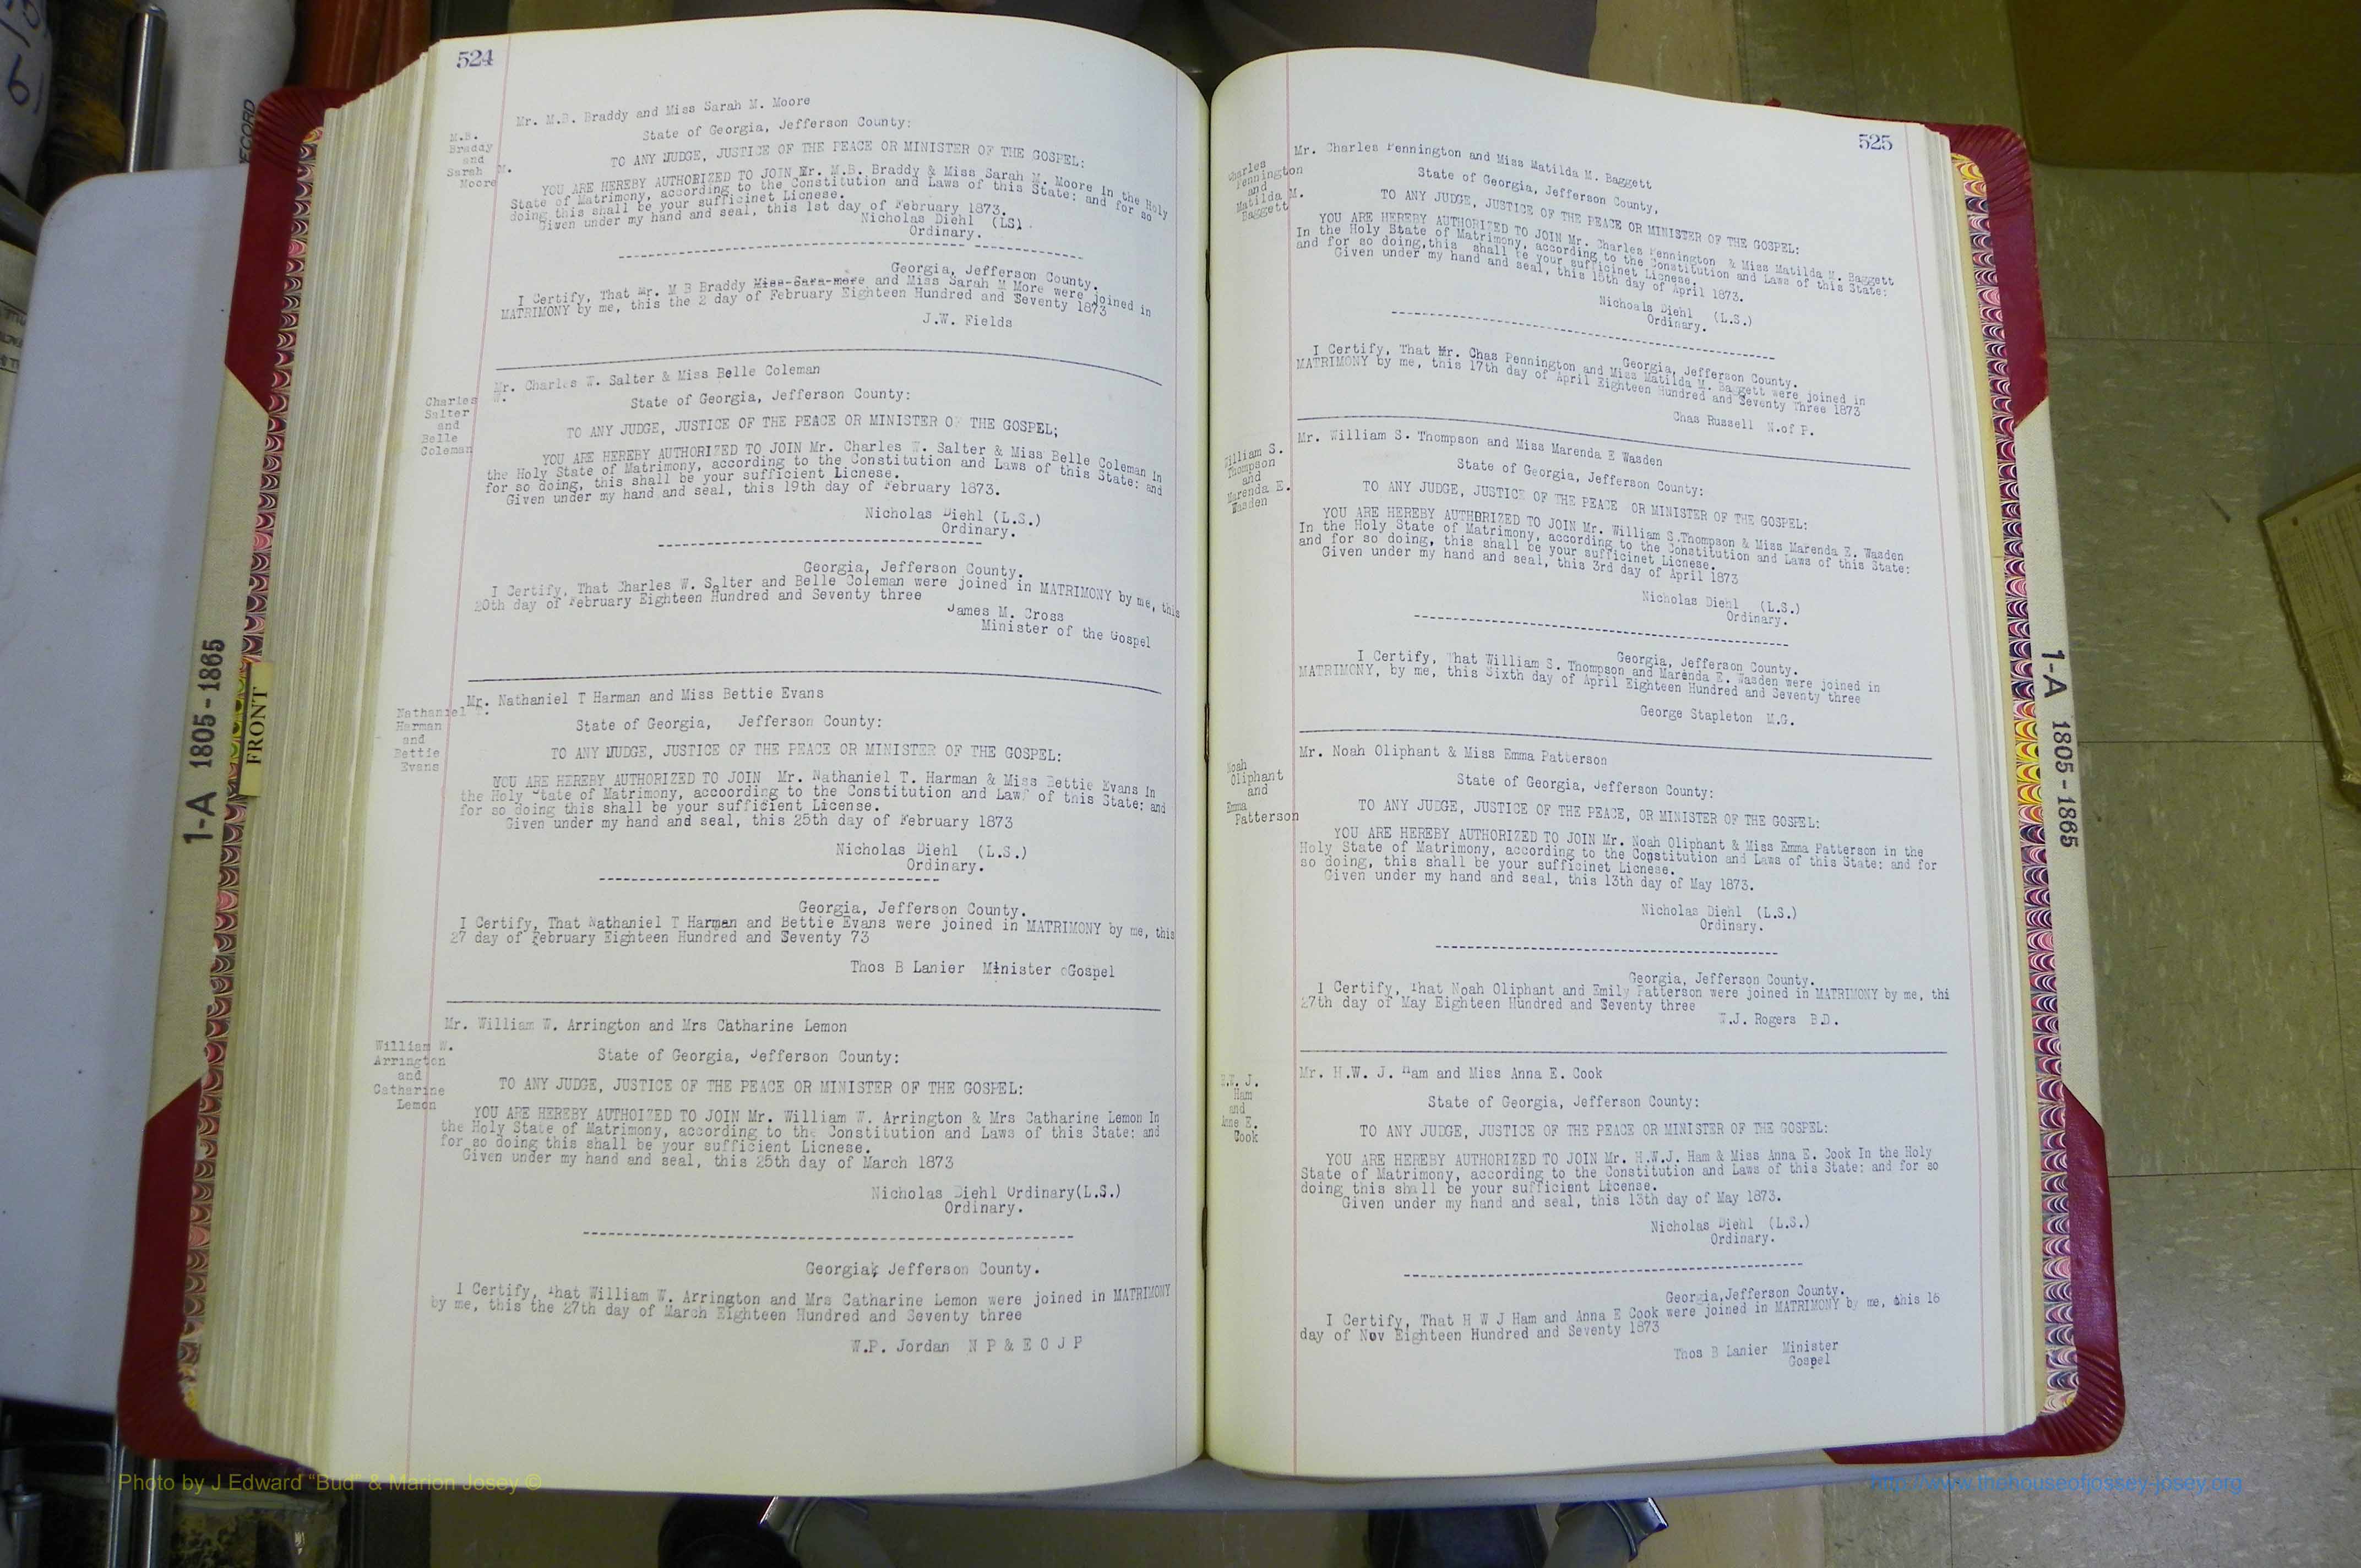 524
M.B.
Braddy
and
Sarah M.
Moore
Mr. M.B. Braddy and Miss Sarah M. Moore
State of Georgia, Jefferson County:
TO ANY JUDGE, JUSTICE OF THE PEACE OR MINISTER OF THE GOSPEL:
YOU ARE HEREBY AUTHORIZED TO JOIN Mr. M.B. Braddy & Miss Sarah M. Moore in the Holy
State of Matrimony, according to the Constitution and Laws of this State: and for so
doing this shall be your sufficinet Licnese.
Given under my hand and seal, this 1st day of February 1873.
Nicholas Diehl (LS)
Ordinary.
Georgia, Jefferson County.
I Certify, That Mr. M B Braddy Miss-Sara-more and Miss Sarah M More were joined in
MATRIMONY by me, this the 2 day of February Eighteen Hundred and Seventy 1873
J.W. Fields
Charles W.
Salter
and
Belle
Coleman
Mr. Charles W. Salter & Miss Belle Coleman
State of Georgia, Jefferson County:
TO ANY JUDGE, JUSTICE OF THE PEACE OR MINISTER OF THE GOSPEL;
YOU ARE HEREBY AUTHORIZED TO JOIN Mr. Charles W. Salter & Miss Belle Coleman In
the Holy State of Matrimony, according to the Constitution and Laws of this State: and
for so doing, this shall be your sufficient Licnese.
Given under my hand and seal, this 19th day of February 1873.
Nicholas Diehl (L.S.)
Ordinary.
Georgia, Jefferson County.
I Certify, That Charles W. Salter and Belle Coleman were joined in MATRIMONY by me, this
20th day of February Eighteen Hundred and Seventy three
James M. Cross
Minister of the Gospel
Nathaniel T.
Harman
and
Bettie
Evans
Mr. Nathaniel T Harman and Miss Bettie Evans
State of Georgia, Jefferson County:
TO ANY JUDGE, JUSTICE OF THE PEACE OR MINISTER OF THE GOSPEL:
YOU ARE HEREBY AUTHORIZED TO JOIN Mr. Nathaniel T. Harman & Miss Bettie Evans In
the Holy State of Matrimony, accoording to the Constitution and Laws of this State: and
for so doing this shall be your sufficient License.
Given under my hand and seal, this 25th day of February 1873
Nicholas Diehl (L.S.)
Ordinary.
Georgia, Jefferson County.
I Certify, That Nathaniel T Harman and Bettie Evans were joined in MATRIMONY by me, this
27 day of February Eighteen Hundred and Seventy 73
Thos B Lanier Minister oGospel
William W.
Arrington
and
Catharine
Lemon
Mr. William W. Arrington and Mrs Catharine Lemon
State of Georgia, Jefferson County:
TO ANY JUDGE, JUSTICE OF THE PEACE OR MINISTER OF THE GOSPEL:
YOU ARE HEREBY AUTHOIZED TO JOIN Mr. William W. Arrington & Mrs Catharine Lemon In
the Holy State of Matrimony, according to the Constitution and Laws of this State: and
for so doing this shall be your sufficient Licnese.
Given under my hand and seal, this 25th day of March 1873
Nicholas Diehl Ordinary(L.S.)
Ordinary.
Georgia, Jefferson County.
I Certify, That William W. Arrington and Mrs Catharine Lemon were joined in MATRIMONY
by me, this the 27th day of March Eighteen Hundred and Seventy three
W.P. Jordan N P & E O J P
525
Charles
Pennington
and
Matilda M.
Baggett
Mr. Charles Pennington and Miss Matilda M. Baggett
State of Georgia, Jefferson County,
TO ANY JUDGE, JUSTICE OF THE PEACE OR MINISTER OF THE GOSPEL:
YOU ARE HEREBY AUTHORIZED TO JOIN Mr. Charles Pennington & Miss Matilda M. Baggett
In the Holy State of Matrimony, according to the Constitution and Laws of this State:
and for so doing,this shall be your sufficinet Licnese.
Given under my hand and seal, this 15th day of April 1873.
Nichoals Diehl (L.S.)
Ordinary.
Georgia, Jefferson County.
I Certify, That Mr. Chas Pennington and Miss Matilda M. Baggett were joined in
MATRIMONY by me, this 17th day of April Eighteen Hundred and Seventy Three 1873
Chas Russell N.of P.
William S.
Thompson
and
Marenda E.
Wasden
Mr. William S. Thompson and Miss Marenda E Wasden
State of Georgia, Jefferson County:
TO ANY JUDGE, JUSTICE OF THE PEACE OR MINISTER OF THE GOSPEL:
YOU ARE HEREBY AUTHORIZED TO JOIN Mr. William S.Thompson & Miss Marenda E. Wasden
In the Holy State of Matrimony, according to the Constitution and Laws of this State:
and for so doing, this shall be your sufficinet Licnese.
Given under my hand and seal, this 3rd day of April 1873
Nicholas Diehl (L.S.)
Ordinary.
Georgia, Jefferson County.
I Certify, That William S. Thompson and Marenda E. Wasden were joined in
MATRIMONY, by me, this Sixth day of April Eighteen Hundred and Seventy three
George Stapleton M.G.
Noah
Oliphant
and
Emma
Patterson
Mr. Noah Oliphant & Miss Emma Patterson
State of Georgia, Jefferson County:
TO ANY JUDGE, JUSTICE OF THE PEACE, OR MINISTER OF THE GOSPEL:
YOU ARE HEREBY AUTHORIZED TO JOIN Mr. Noah Oliphant & Miss Emma Patterson in the
Holy State of Matrimony, according to the Constitution and Laws of this State: and for
so doing, this shall be your sufficinet Licnese.
Given under my hand and seal, this 13th day of May 1873.
Nicholas Diehl (L.S.)
Ordinary.
Georgia, Jefferson County.
I Certify, That Noah Oliphant and Emily Patterson were joined in MATRIMONY by me, thi
27th day of May Eighteen Hundred and Seventy three
W.J. Rogers B.D.
H.W. J.
Ham
and
Anne E.
Cook
Mr. H.W. J. Ham and Miss Anna E. Cook
State of Georgia, Jefferson County:
TO ANY JUDGE, JUSTICE OF THE PEACE OR MINISTER OF THE GOSPEL:
YOU ARE HEREBY AUTHORIZED TO JOIN Mr. H.W.J. Ham & Miss Anna E. Cook In the Holy
State of Matrimony, according to the Constitution and Laws of this State: and for so
doing this shall be your sufficient License.
Given under my hand and seal, this 13th day of May 1873.
Nicholas Diehl (L.S.)
Ordinary.
Georgia,Jefferson County.
I Certify, That H W J Ham and Anna E Cook were joined in MATRIMONY by me, this 16
day of Nov Eighteen Hundred and Seventy 1873
Thos B Lanier Minister
Gospel
1-A 1805-1865
FRONT
1-A 1805-1865
Photo by J Edward “Bud” & Marion Josey ©
http://www.thehouseofjossey-josey.org